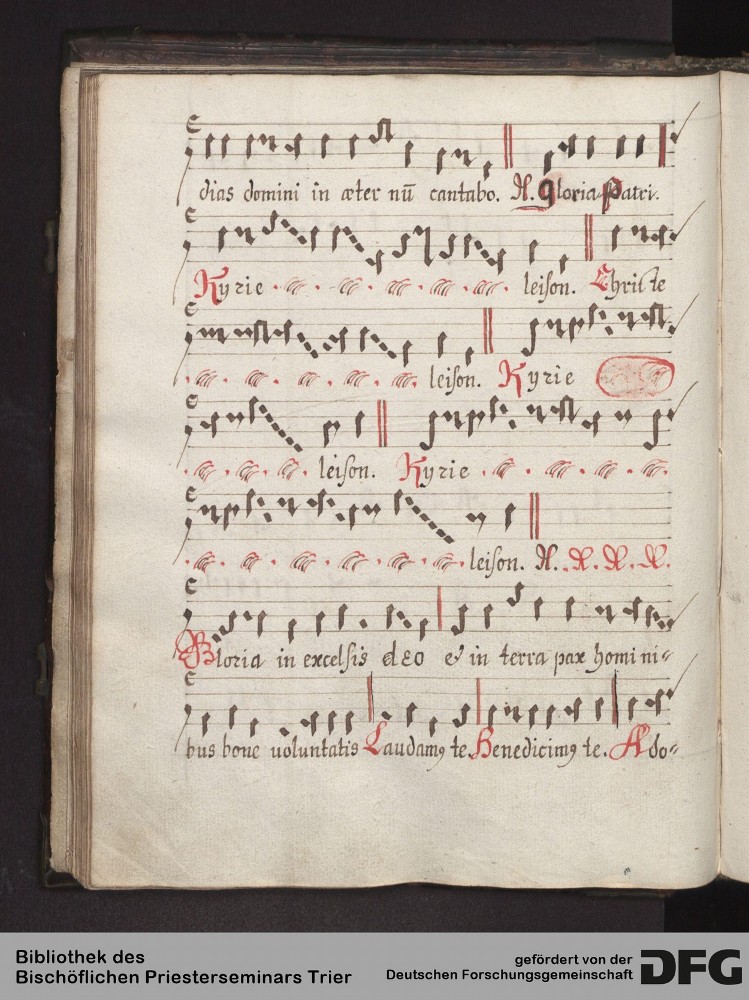 dias domini in æter nū cantabo. R. Gloria Patri.
Kyrie leison. Christe
leison. Kyrie
leison. Kyrie
leison. R. R. R. R.
Gloria in excelsis deo et in terra pax homi ni⸗
bus bone uoluntatis Laudamꝰ te. Benedicimꝰ te. Ado⸗
Bibliothek des
Bischöflichen Priesterseminars Trier
gefördert von der
Deutschen Forschungsgemeinschaft DFG